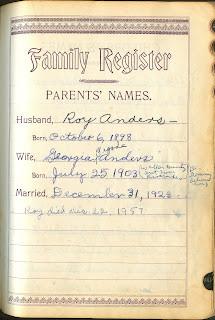 Family Register
PARENTS' NAMES.
Husband, Roy Anders
Born, October 6, 1898
Wife, Georgia Anders
Born, July 25 1903
Married, December 31, 1923
Roy died Aug. 22, 1957